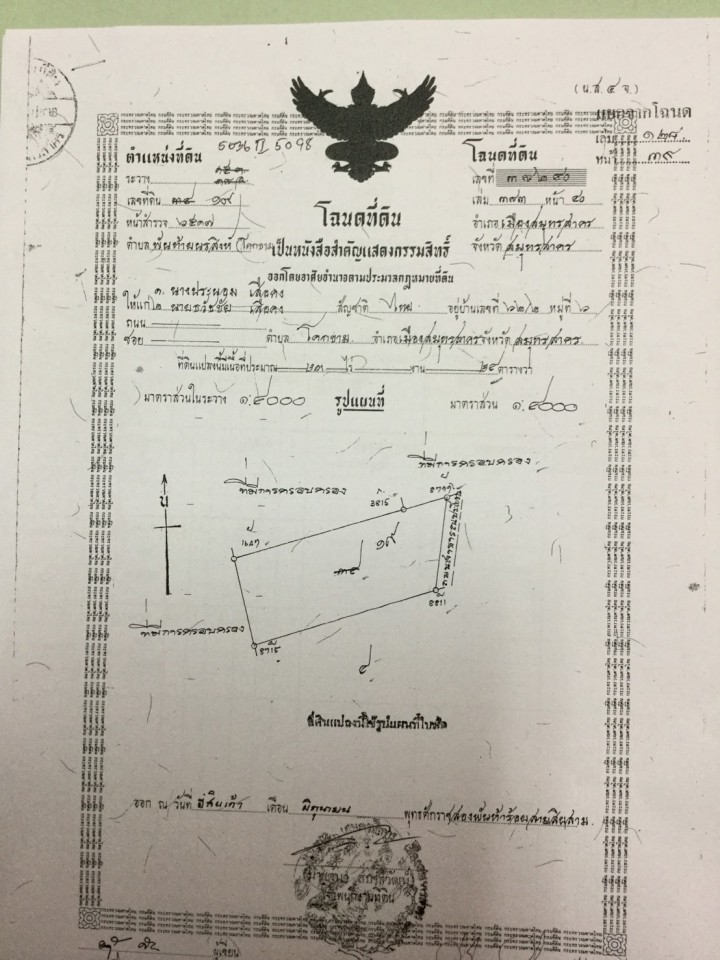 (น.ส.๔ จ.)
5036 II 5098
ตำแหน่งที่ดิน
ระวาง
เลขที่ดิน ๑๙
หน้าสำรวจ ๒๕๓๗
ตำบล พันท้ายนรสิงห์ (โคกขาม
โฉนดที่ดิน
เลขที่ ๓๗๒๕๐
เล่ม ๓๗๓ หน้า ๕๐
อำเภอ เมืองสมุทรสาคร
จังหวัด สมุทรสาคร
โฉนด
เล่ม ๑๒๘
หน้า ๓๙
โฉนดที่ดิน
เป็นหนังสือสำคัญแสดงกรรมสิทธิ์
ออกโดยอาศัยอำนาจตามประมวลกฎหมายที่ดิน
๑. นางประนอม เสือคง
ให้แก่ ๒ นายธวัชชัย เสือคง สัญชาติ ไทย อยู่บ้านเลขที่ ๖๒/๒ หมู่ที่ ๖
ถนน
ซอย ตำบล โคกขาม อำเภอ เมืองสมุทรสาคร จังหวัด สมุทรสาคร
ที่ดินแปลงนี้มีเนื้อที่ประมาณ ๒๓ ไร่ งาน ๒๕ ตารางวา
มาตราส่วนในระวาง ๑:๔๐๐๐ รูปแผนที่ มาตราส่วน ๑:๔๐๐๐
ที่มีการครอบครอง
ที่มีการครอบครอง
น
๑๙
ที่มีการครอบครอง
ออก ณ วันที่ ยี่สิบเก้า เดือน มิถุนายน พุทธศักราช สองพันห้าร้อยสามสิบสาม
เจ้าพนักงานที่ดิน
ผู้เขียน